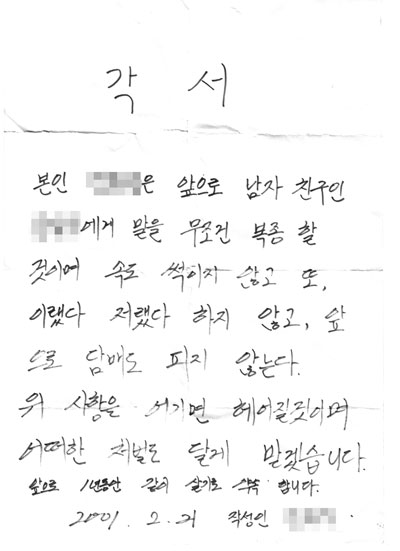 각 서
본인 은 앞으로 남자 친구인
에게 말을 무조건 복종 할
것이며 속도 썩이지 않고 또,
이랬다 저랬다 하지 않고, 앞
으로 담배도 피지 않는다.
위 사항을 어기면 헤어질것이며
어떠한 처벌도 달게 받겠습니다.
앞으로 1년동안 같이 살기로 약속 합니다.
2001. 2. 21 작성인